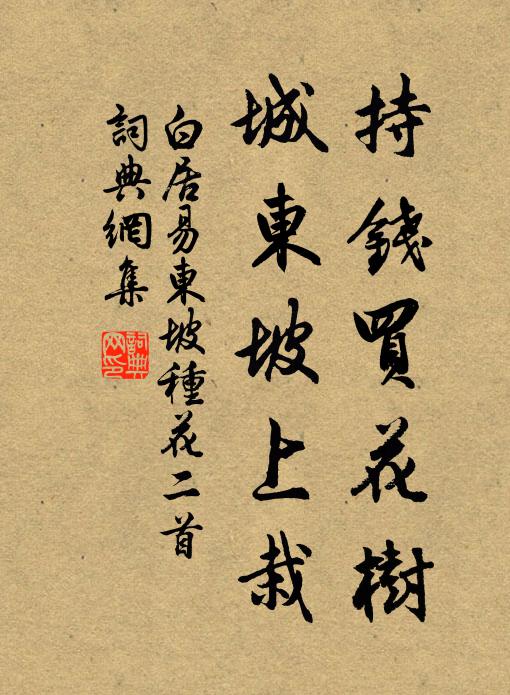 持錢買花樹
城東坡上栽
白居易東坡種花二首
詞典網集
詞典網印